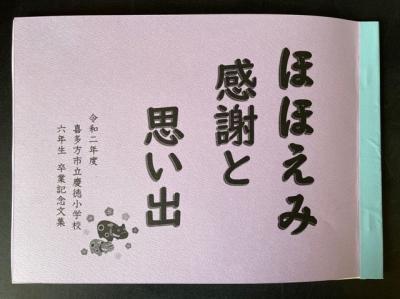 ほほえみ
感謝と
思い出
令和二年度
喜多方市立慶徳小学校
六年生 卒業記念文集